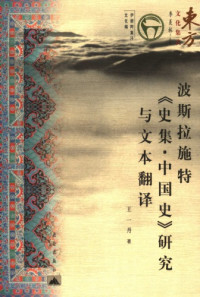 東方
文化集成
波斯拉施特
《史集·中国史》研究
与文本翻译
王一丹 著